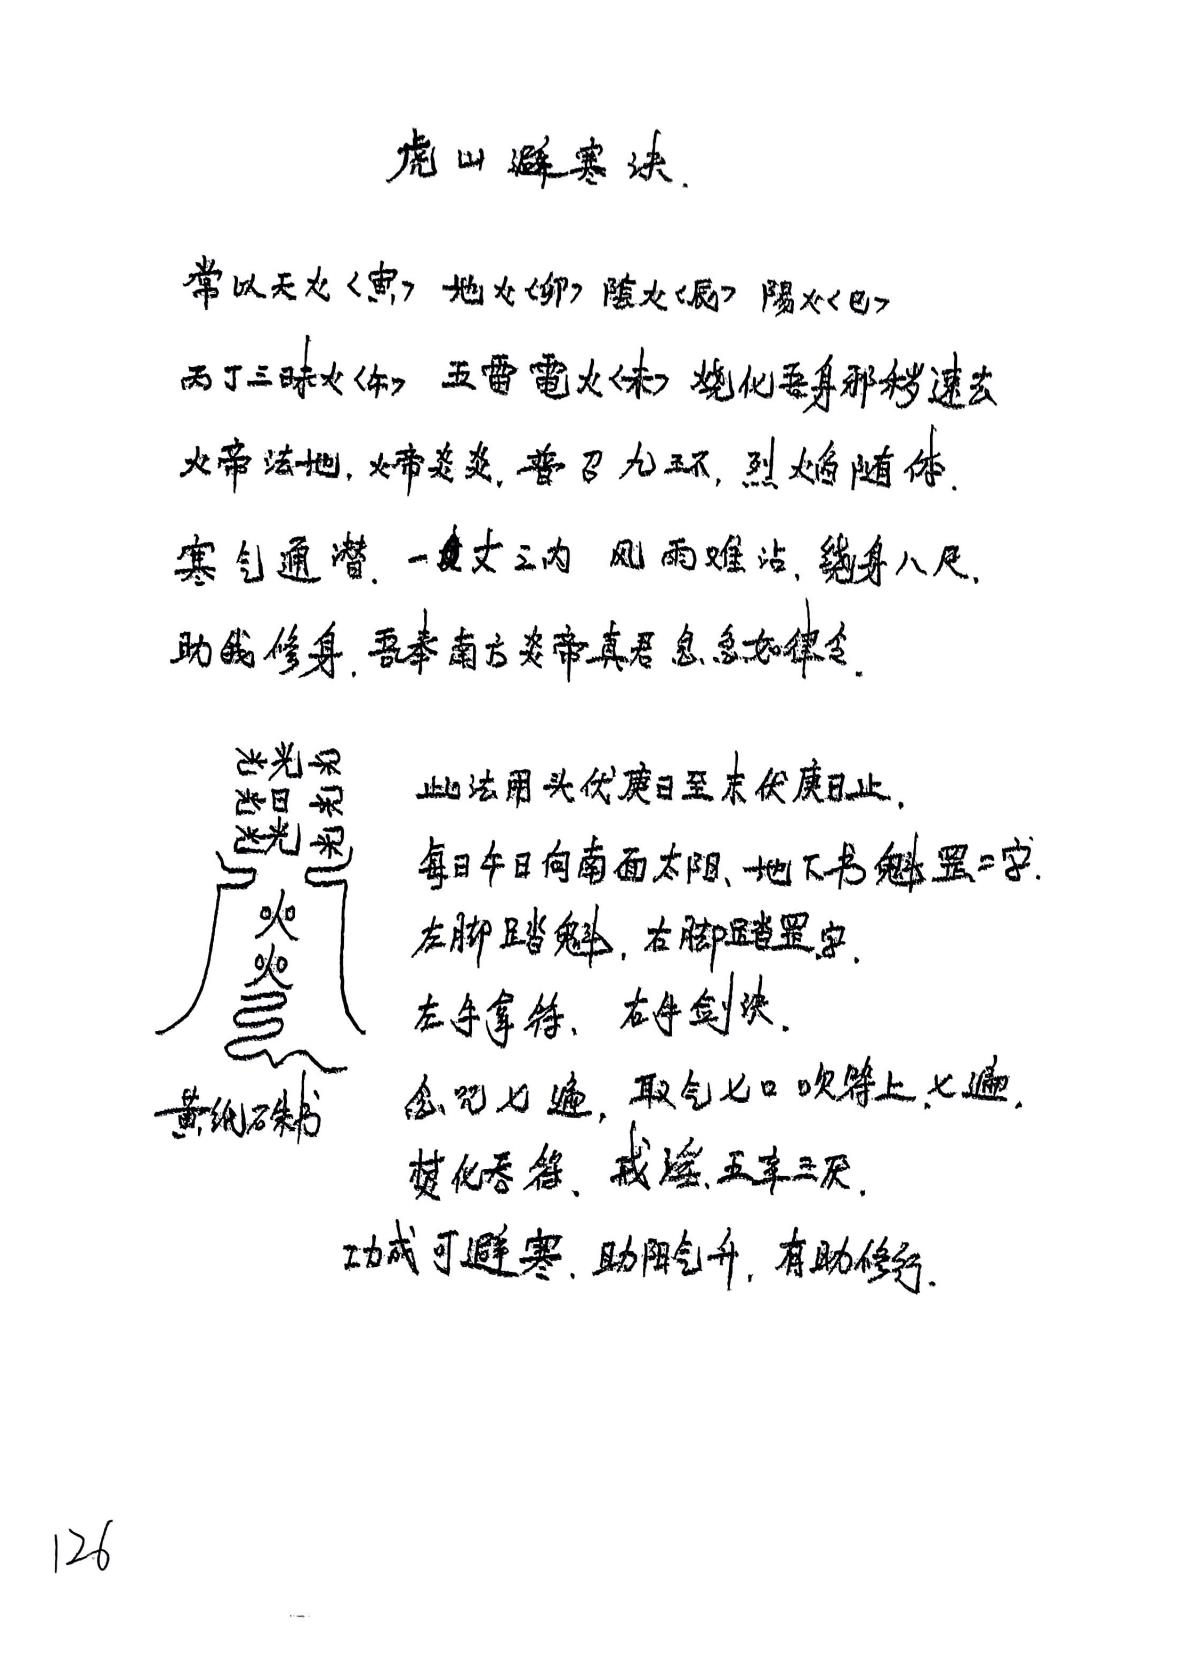 虎山避寒决.
常以天火<寅> 地火<卯> 陰火<辰> 陽火<巳>
丙丁三昧火<午> 五雷電火<未> 烧化吾身邪秽速去
火帝法地,火帝炎炎,普召九环,烈焰随体.
寒气通潜.一丈之内 风雨难沾,绕身八尺,
助我修身.吾奉南方炎帝真君急急如律令.
光光
日
光
火
火
黄纸石朱书
此法用头伏庚日至末伏庚日止.
每日午日向南面太阳、地下书魁罡二字.
左脚踏魁,右脚踏罡字.
左手拿符、右手剑决.
念咒七遍,取气七口吹符上,七遍.
焚化吞符、戒淫、五辛三厌.
功成可避寒、助阳气升,有助修行.
126